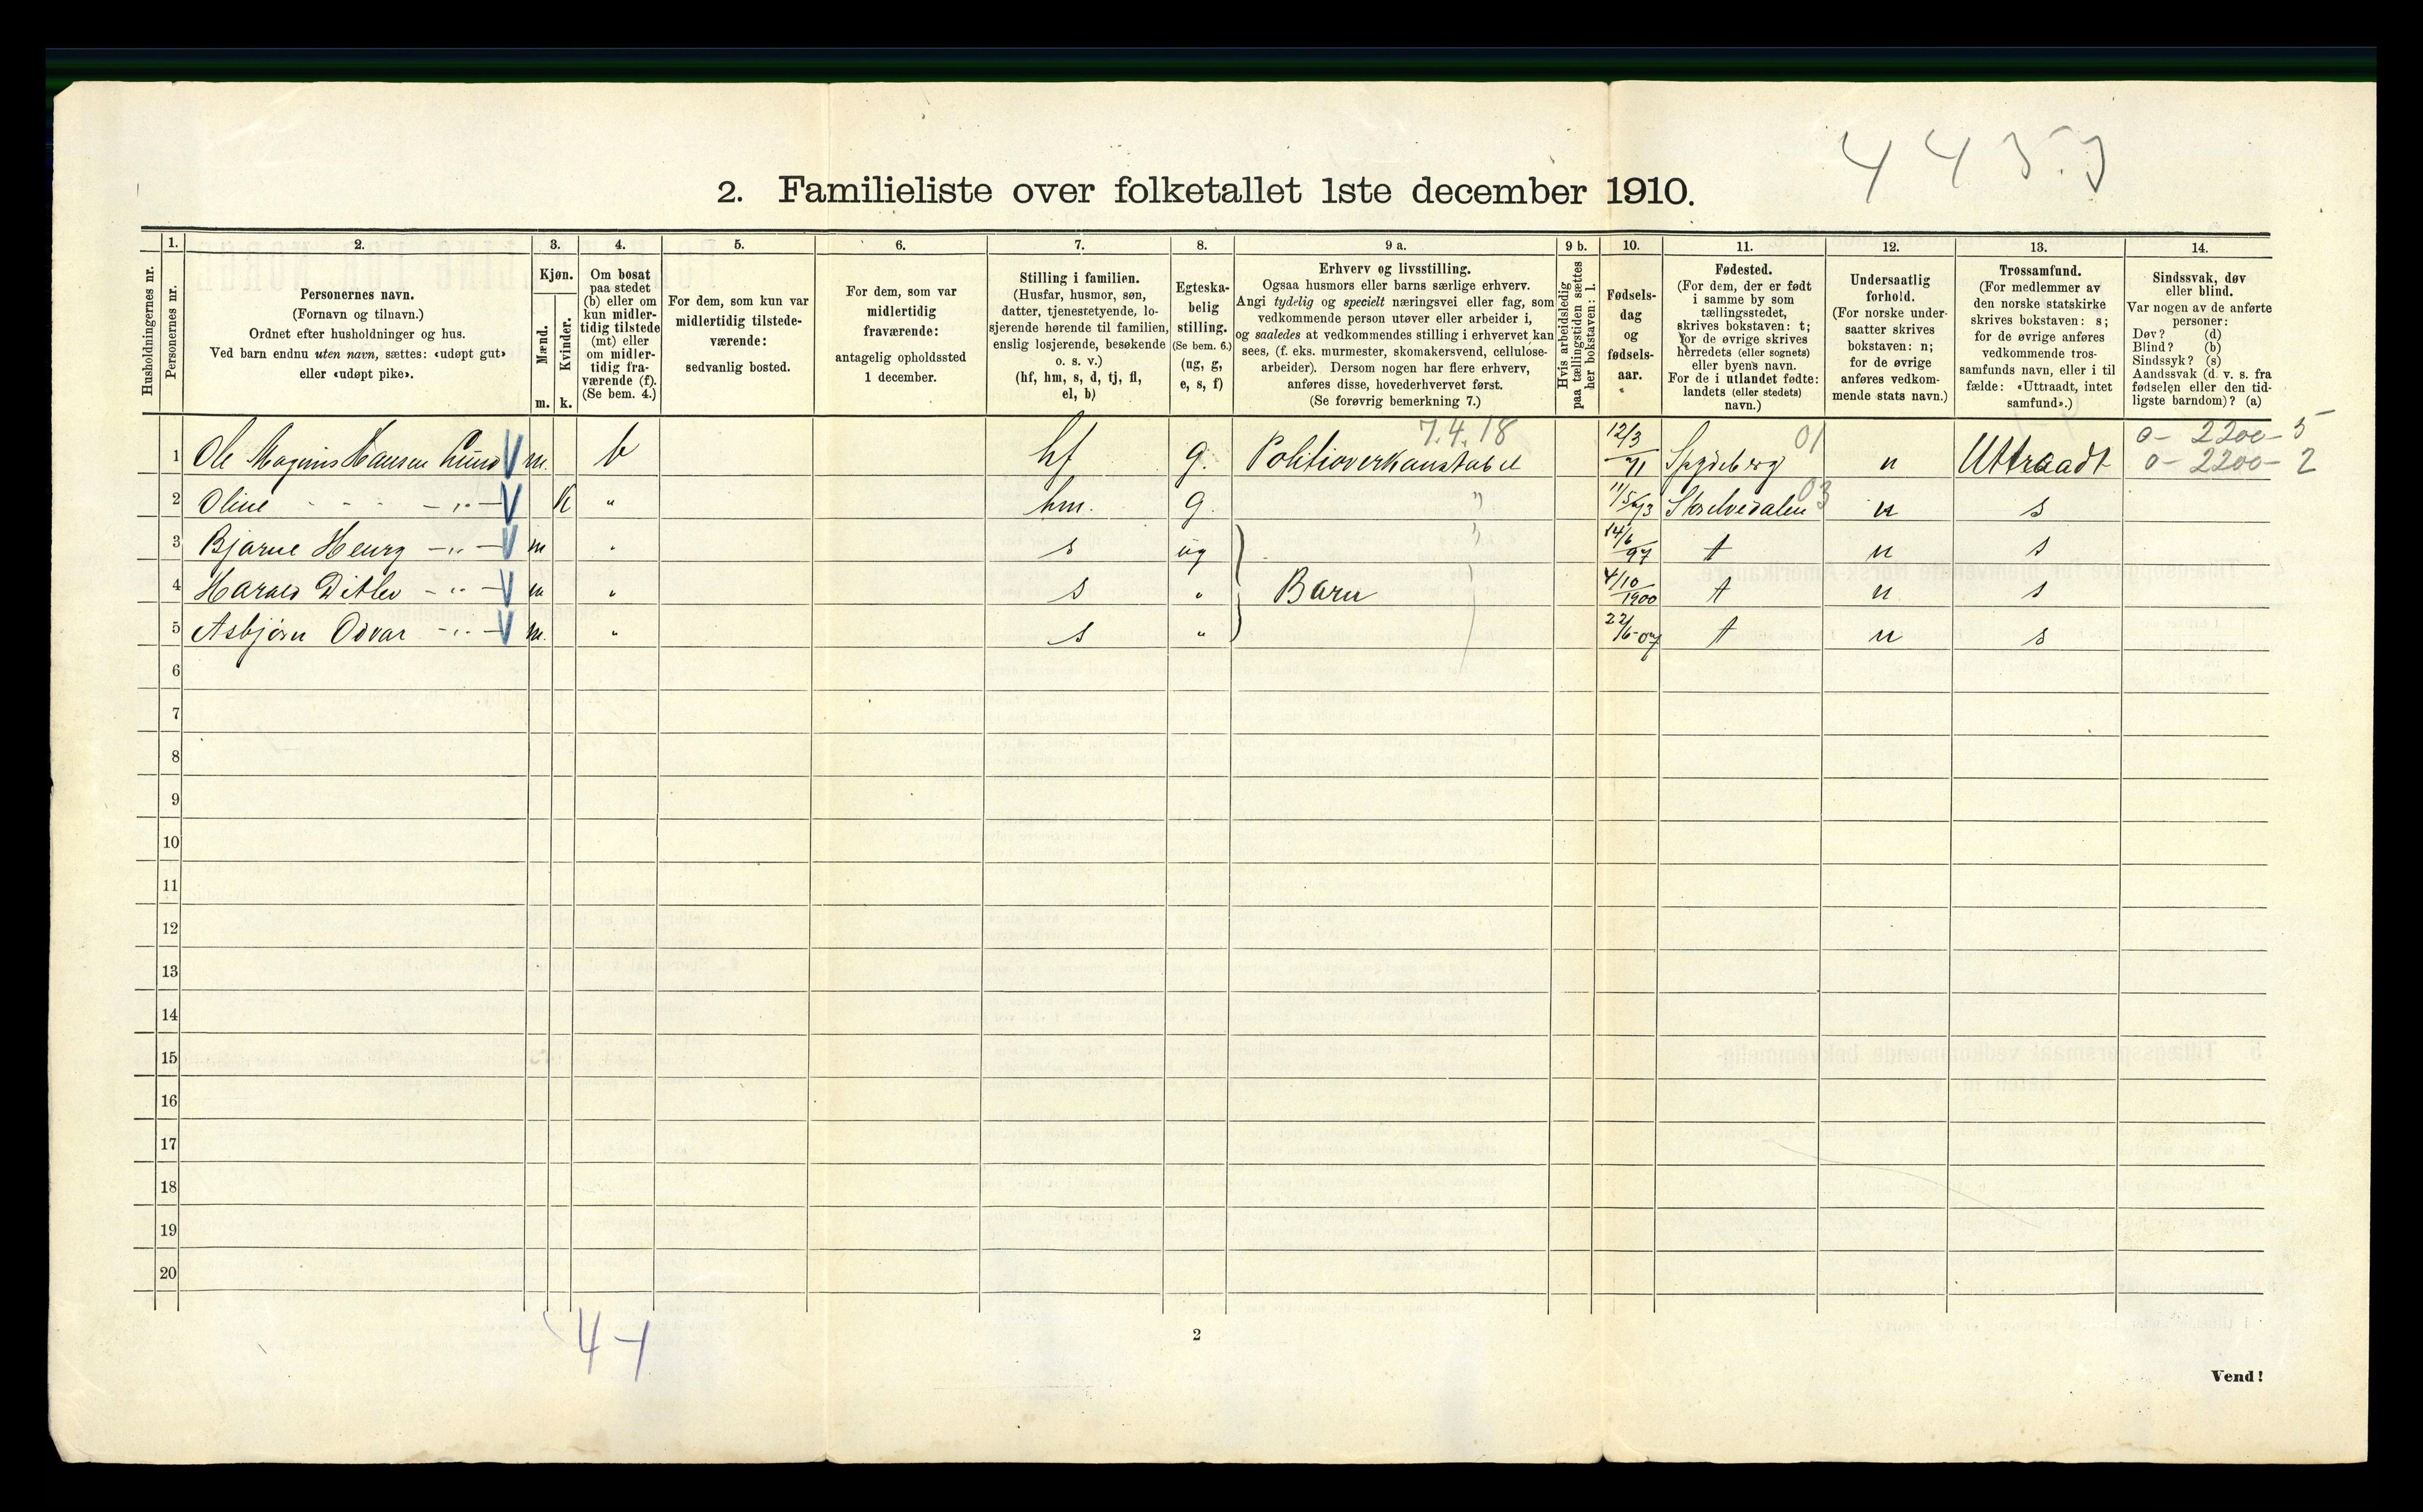 445.3
2. Familieliste over folketallet 1ste december 1910.
Husholdningernes nr.
1.
Personernes nr.
2.
Personernes navn.
(Fornavn og tilnavn.)
Ordnet efter husholdninger og hus.
Ved barn endnu uten navn, sættes: «udøpt gut»
eller «udøpt pike».
3.
Kjøn.
Mænd.
m.
Kvinder.
k.
4.
Om bosat
paa stedet
(b) eller om
kun midler-
tidig tilstede
(mt) eller
om midler-
tidig fra-
værende (f).
(Se bem. 4.)
5.
For dem, som kun var
midlertidig tilstede-
værende:
sedvanlig bosted.
6.
For dem, som var
midlertidig
fraværende:
antagelig opholdssted
1 december.
7.
Stilling i familien.
(Husfar, husmor, søn,
datter, tjenestetyende, lo-
sjerende hørende til familien,
enslig losjerende, besøkende
o. s. v.)
(hf, hm, s, d, tj, fl,
el, b)
8.
Egteska-
belig
stilling.
(Se bem. 6.)
(ug, g,
e, s, f)
9 a.
Erhverv og livsstilling.
Ogsaa husmors eller barns særlige erhverv.
Angi tydelig og specielt næringsvei eller fag, som
vedkommende person utøver eller arbeider i,
og saaledes at vedkommendes stilling i erhvervet kan
sees, (f. eks. murmester, skomakersvend, cellulose-
arbeider). Dersom nogen har flere erhverv,
anføres disse, hovederhvervet først.
(Se forøvrig bemerkning 7.)
9 b.
Hvis arbeidsledig
paa tællingstiden sættes
her bokstaven: l.
10.
Fødsels-
dag
og
fødsels-
aar.
11.
Fødested.
(For dem, der er født
i samme by som
tællingsstedet,
skrives bokstaven: t;
for de øvrige skrives
herredets (eller sognets)
eller byens navn.
For de i utlandet fødte:
landets (eller stedets)
navn.)
12.
Undersaatlig
forhold.
(For norske under-
saatter skrives
bokstaven: n;
for de øvrige
anføres vedkom-
mende stats navn.)
13.
Trossamfund.
(For medlemmer av
den norske statskirke
skrives bokstaven: s;
for de øvrige anføres
vedkommende tros-
samfunds navn, eller i til
fælde: «Uttraadt, intet
samfund».)
14.
Sindssvak, døv
eller blind.
Var nogen av de anførte
personer:
Døv? (d)
Blind? (b)
Sindssyk? (s)
Aandssvak (d. v. s. fra
fødselen eller den tid-
ligste barndom)? (a)
7.4.18 01 0- 2200-5
1 Ole Magnus Hansen Lund V m. b hf g. Politioverkonstabel 12/3 71 Spydeberg n Uttraadt 0- 2200-2
2 Oline - - - -"- V K " hm. g. " 11/5 73 Storelvedalen 03 n s
3 Bjarne Henry -"- V m " s ug " 14/6 97 t n s
4 Harald Ditlev -"- V m " s " Barn 4/10 1900 t n s
5 Asbjørn Odvar -"- V m. " s " 22/6-07 t n s
6
7
8
9
10
11
12
13
14
15
16
17
18
19
20
2
Vend!